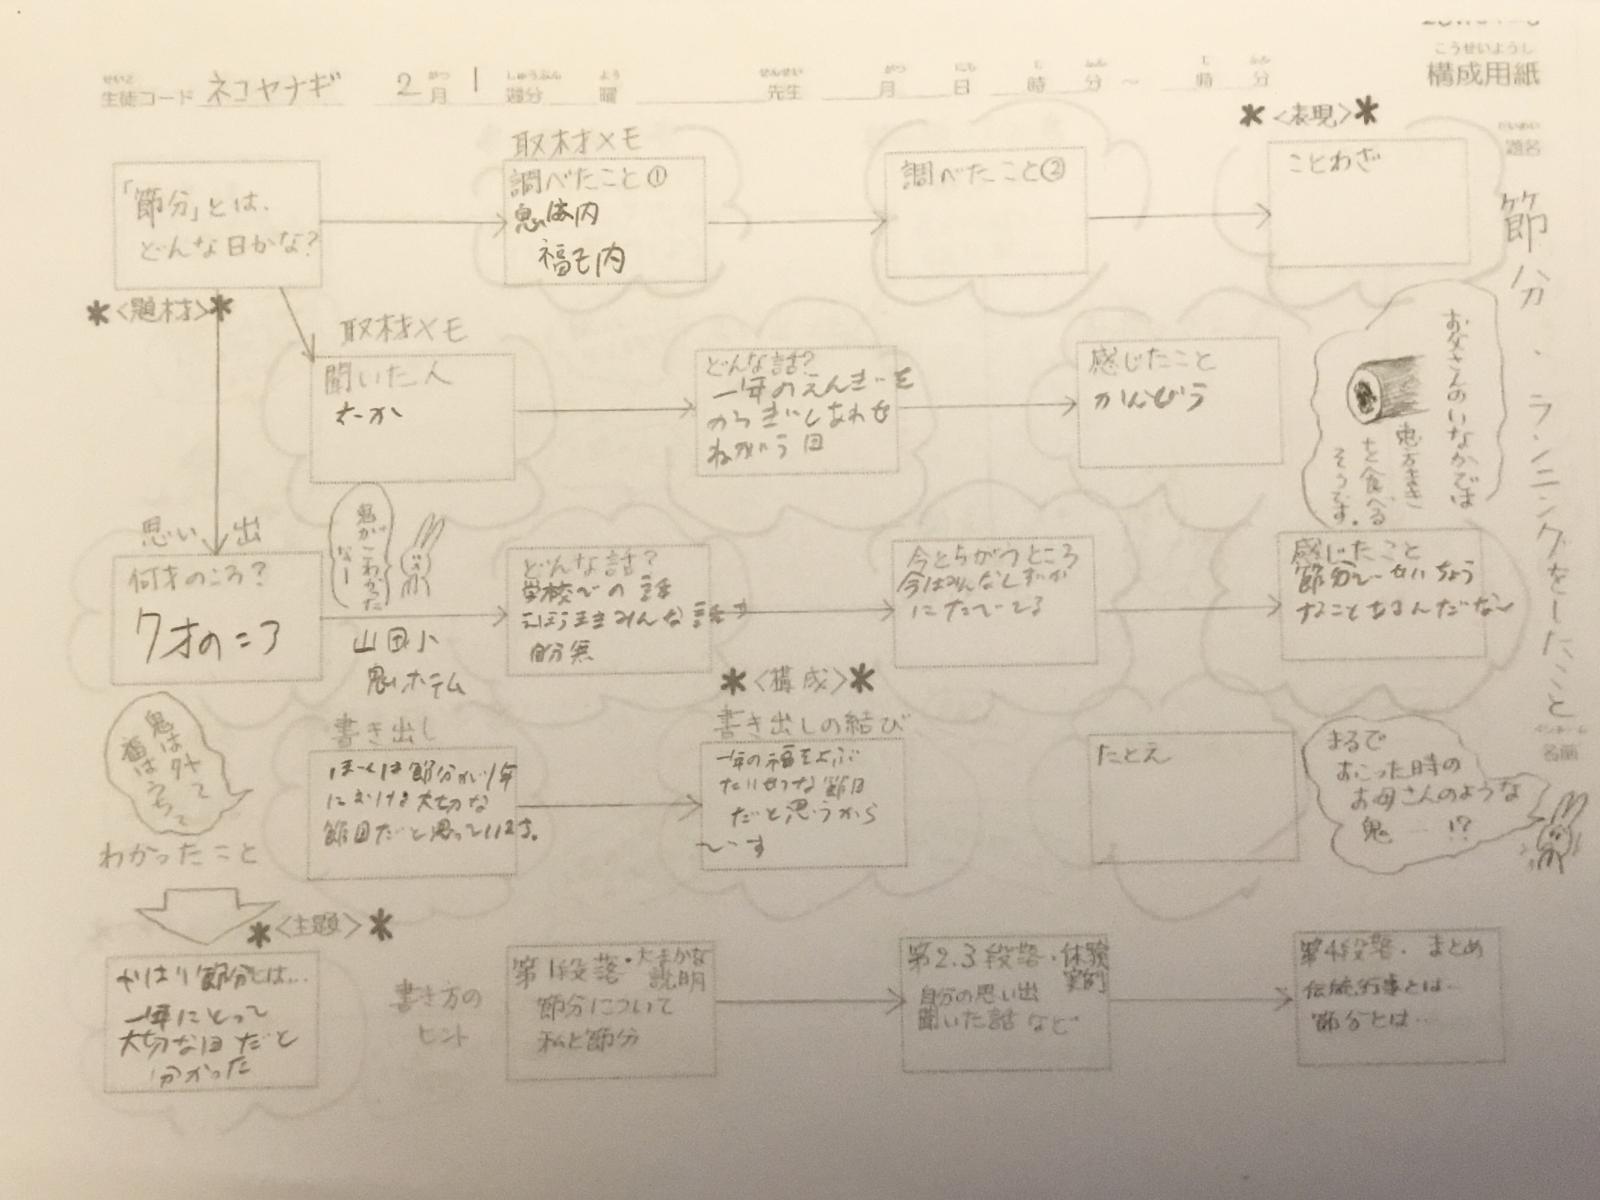 構成用紙
生徒コード ネコヤナギ 2月 1週分 曜 先生 月 日 時 分 ~ 時 分
題名
節分、ランニングをしたこと
名前
＊<表現>＊
取材メモ
「節分」とは、
どんな日かな?
調べたこと①
福も内
調べたこと②
ことわざ
＊<題材>＊
取材メモ
聞いた人
どんな話?
一年のえんぎを
ねがう日
感じたこと
お父さんのいなかでは
恵方まき
を食べる
そうです。
思い出
何才のころ?
7才のころ
鬼が
こわかった
なー
山田小
どんな話?
学校での話
今とちがうところ
今はみんなしずか
にたべてる
感じたこと
＊<構成>＊
鬼は外って
福はうちって
わかったこと
書き出し
ぼくは節分が1年
における大切な
節目だと思っています。
書き出しの結び
一年の福をよぶ
たいせつな節目
だと思うから
です
たとえ
まるで
おこった時の
お母さんのような
鬼―!?
＊<主題>＊
やはり節分とは…
一年にとって
大切な日だと
分かった
書き方の
ヒント
第1段落・大まかな
説明
節分について
私と節分
第2.3段落・体験
実例
自分の思い出
聞いた話など
第4段落・まとめ
伝統行事とは…
節分とは…